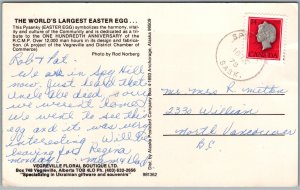 THE WORLD'S LARGEST EASTER EGG . . .
This Pysanky (EASTER EGG) symbolizes the harmony, vital-
ity and culture of the Community and is dedicated as a tri-
bute to the ONE HUNDREDTH ANNIVERSARY of the
R.C.M.P. Over 12,000 man hours in its design and fabrica-
tion. (A project of the Vegreville and District Chamber of
Commerce)
Photo by Rod Norberg
Rob & Pat.
We are in Spy Hill
now. Just heard that
Uncle died, now
we weren't home.
We went to see the
egg and it was very
interesting. Will be
leaving for Regina
monday. Mom & Dad
VEGREVILLE FLORAL BOUTIQUE LTD.
Box 748 Vegreville, Alberta TOB 4LO Ph. (403) 632-2656
"Specializing in Ukrainian giftware and souvenirs"
961362
SASK.
mr. mrs R.
2330 William
North Vancouver
B.C.